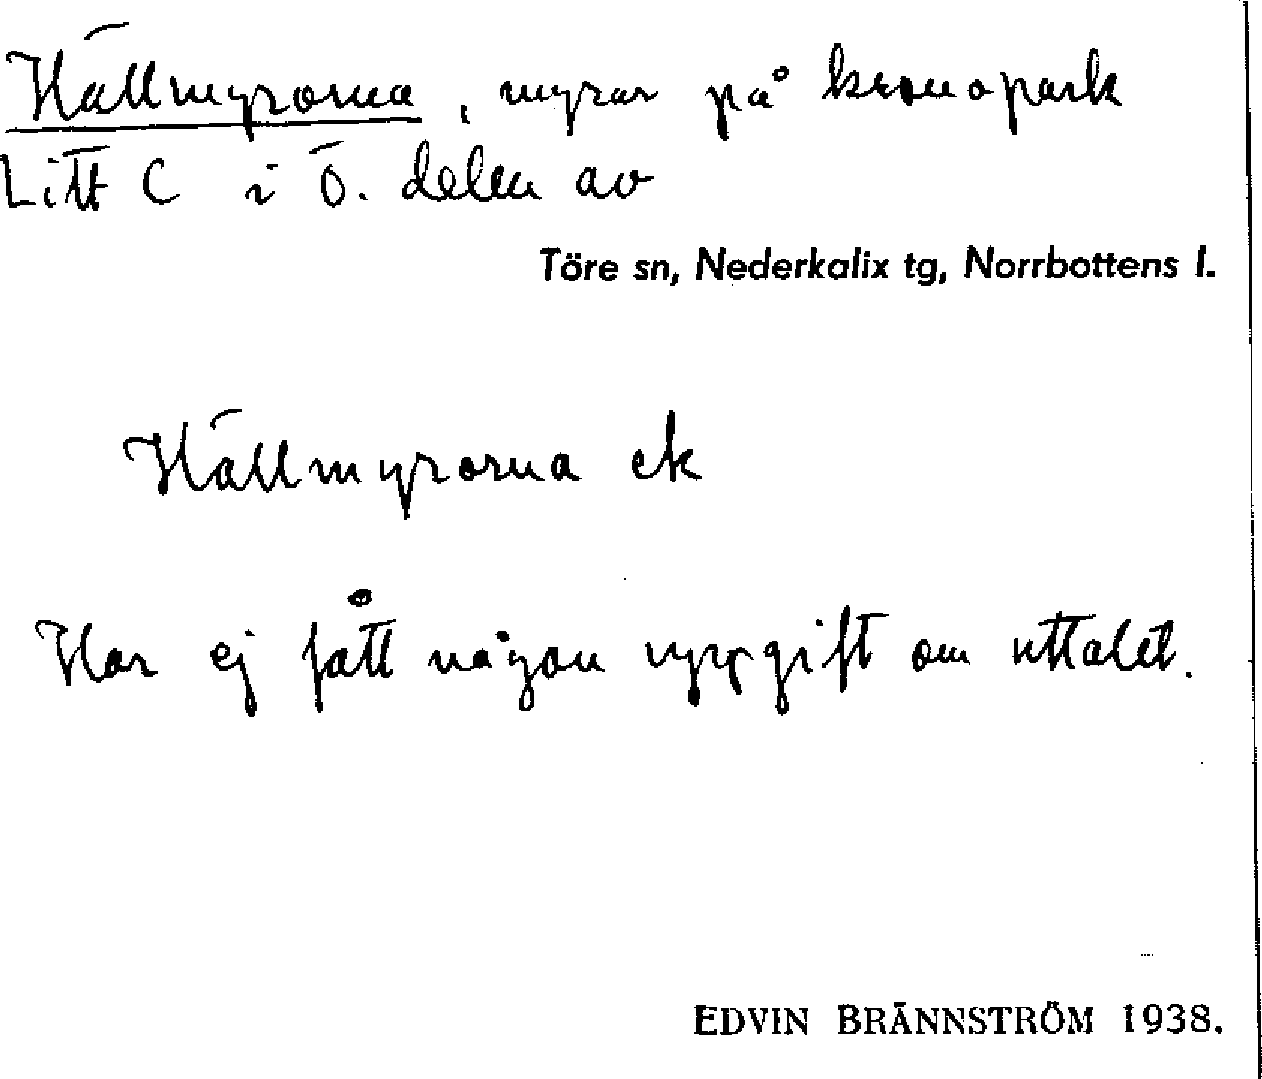 Hällmyrorna, myrar på kronopark
Litt C i Ö. delen av
Töre sn, Nederkalix tg, Norrbottens l.
Hällmyrorna ek
Har ej fått någon uppgift om uttalet.
EDVIN BRÄNNSTRÖM 1938.